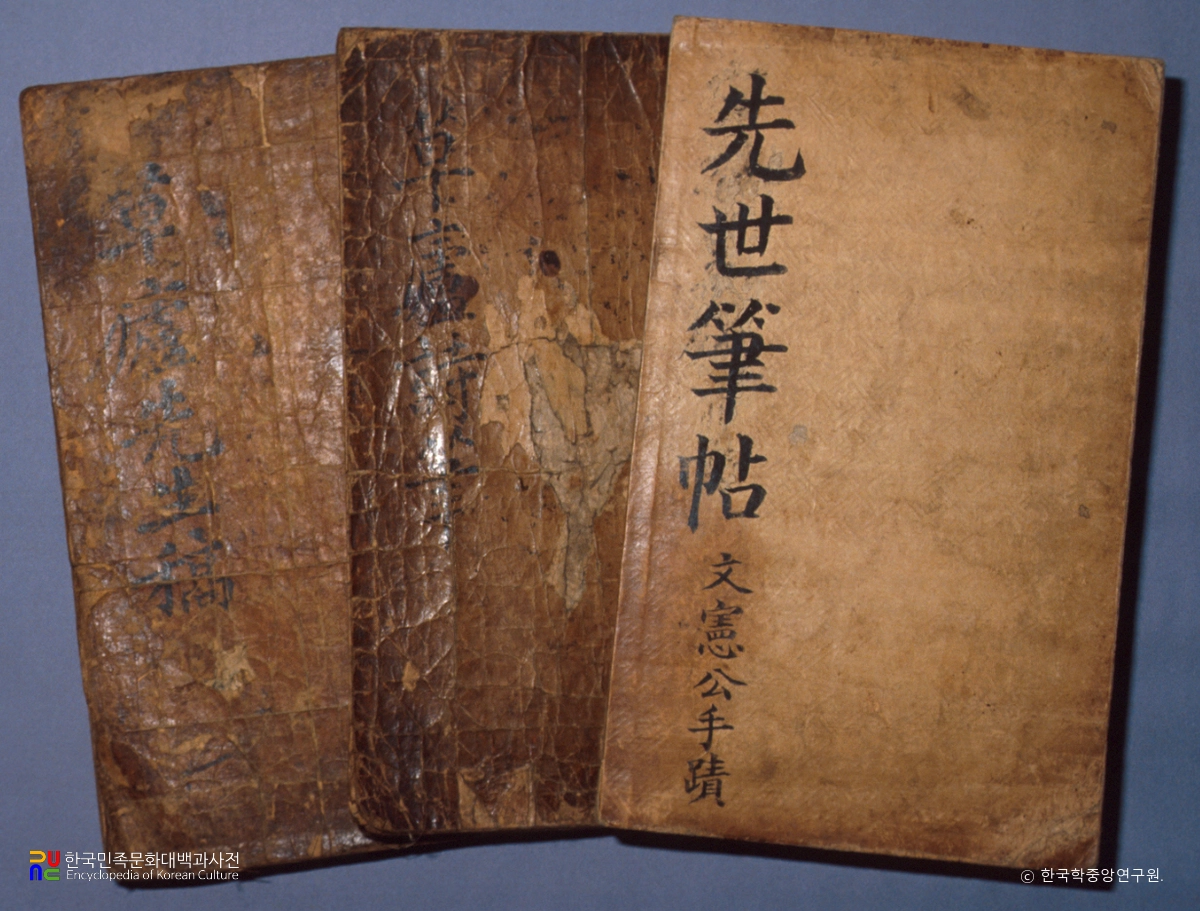 先世筆帖
文憲公手蹟
詩
廬先生稿
한국민족문화대백과사전
Encyclopedia of Korean Culture
ⓒ 한국학중앙연구원.